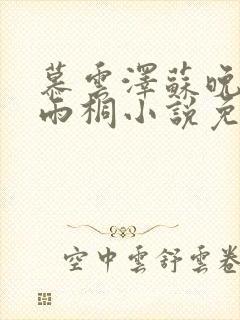 慕雲澤蘇晚
雨桐小說免
空中雲舒雲卷